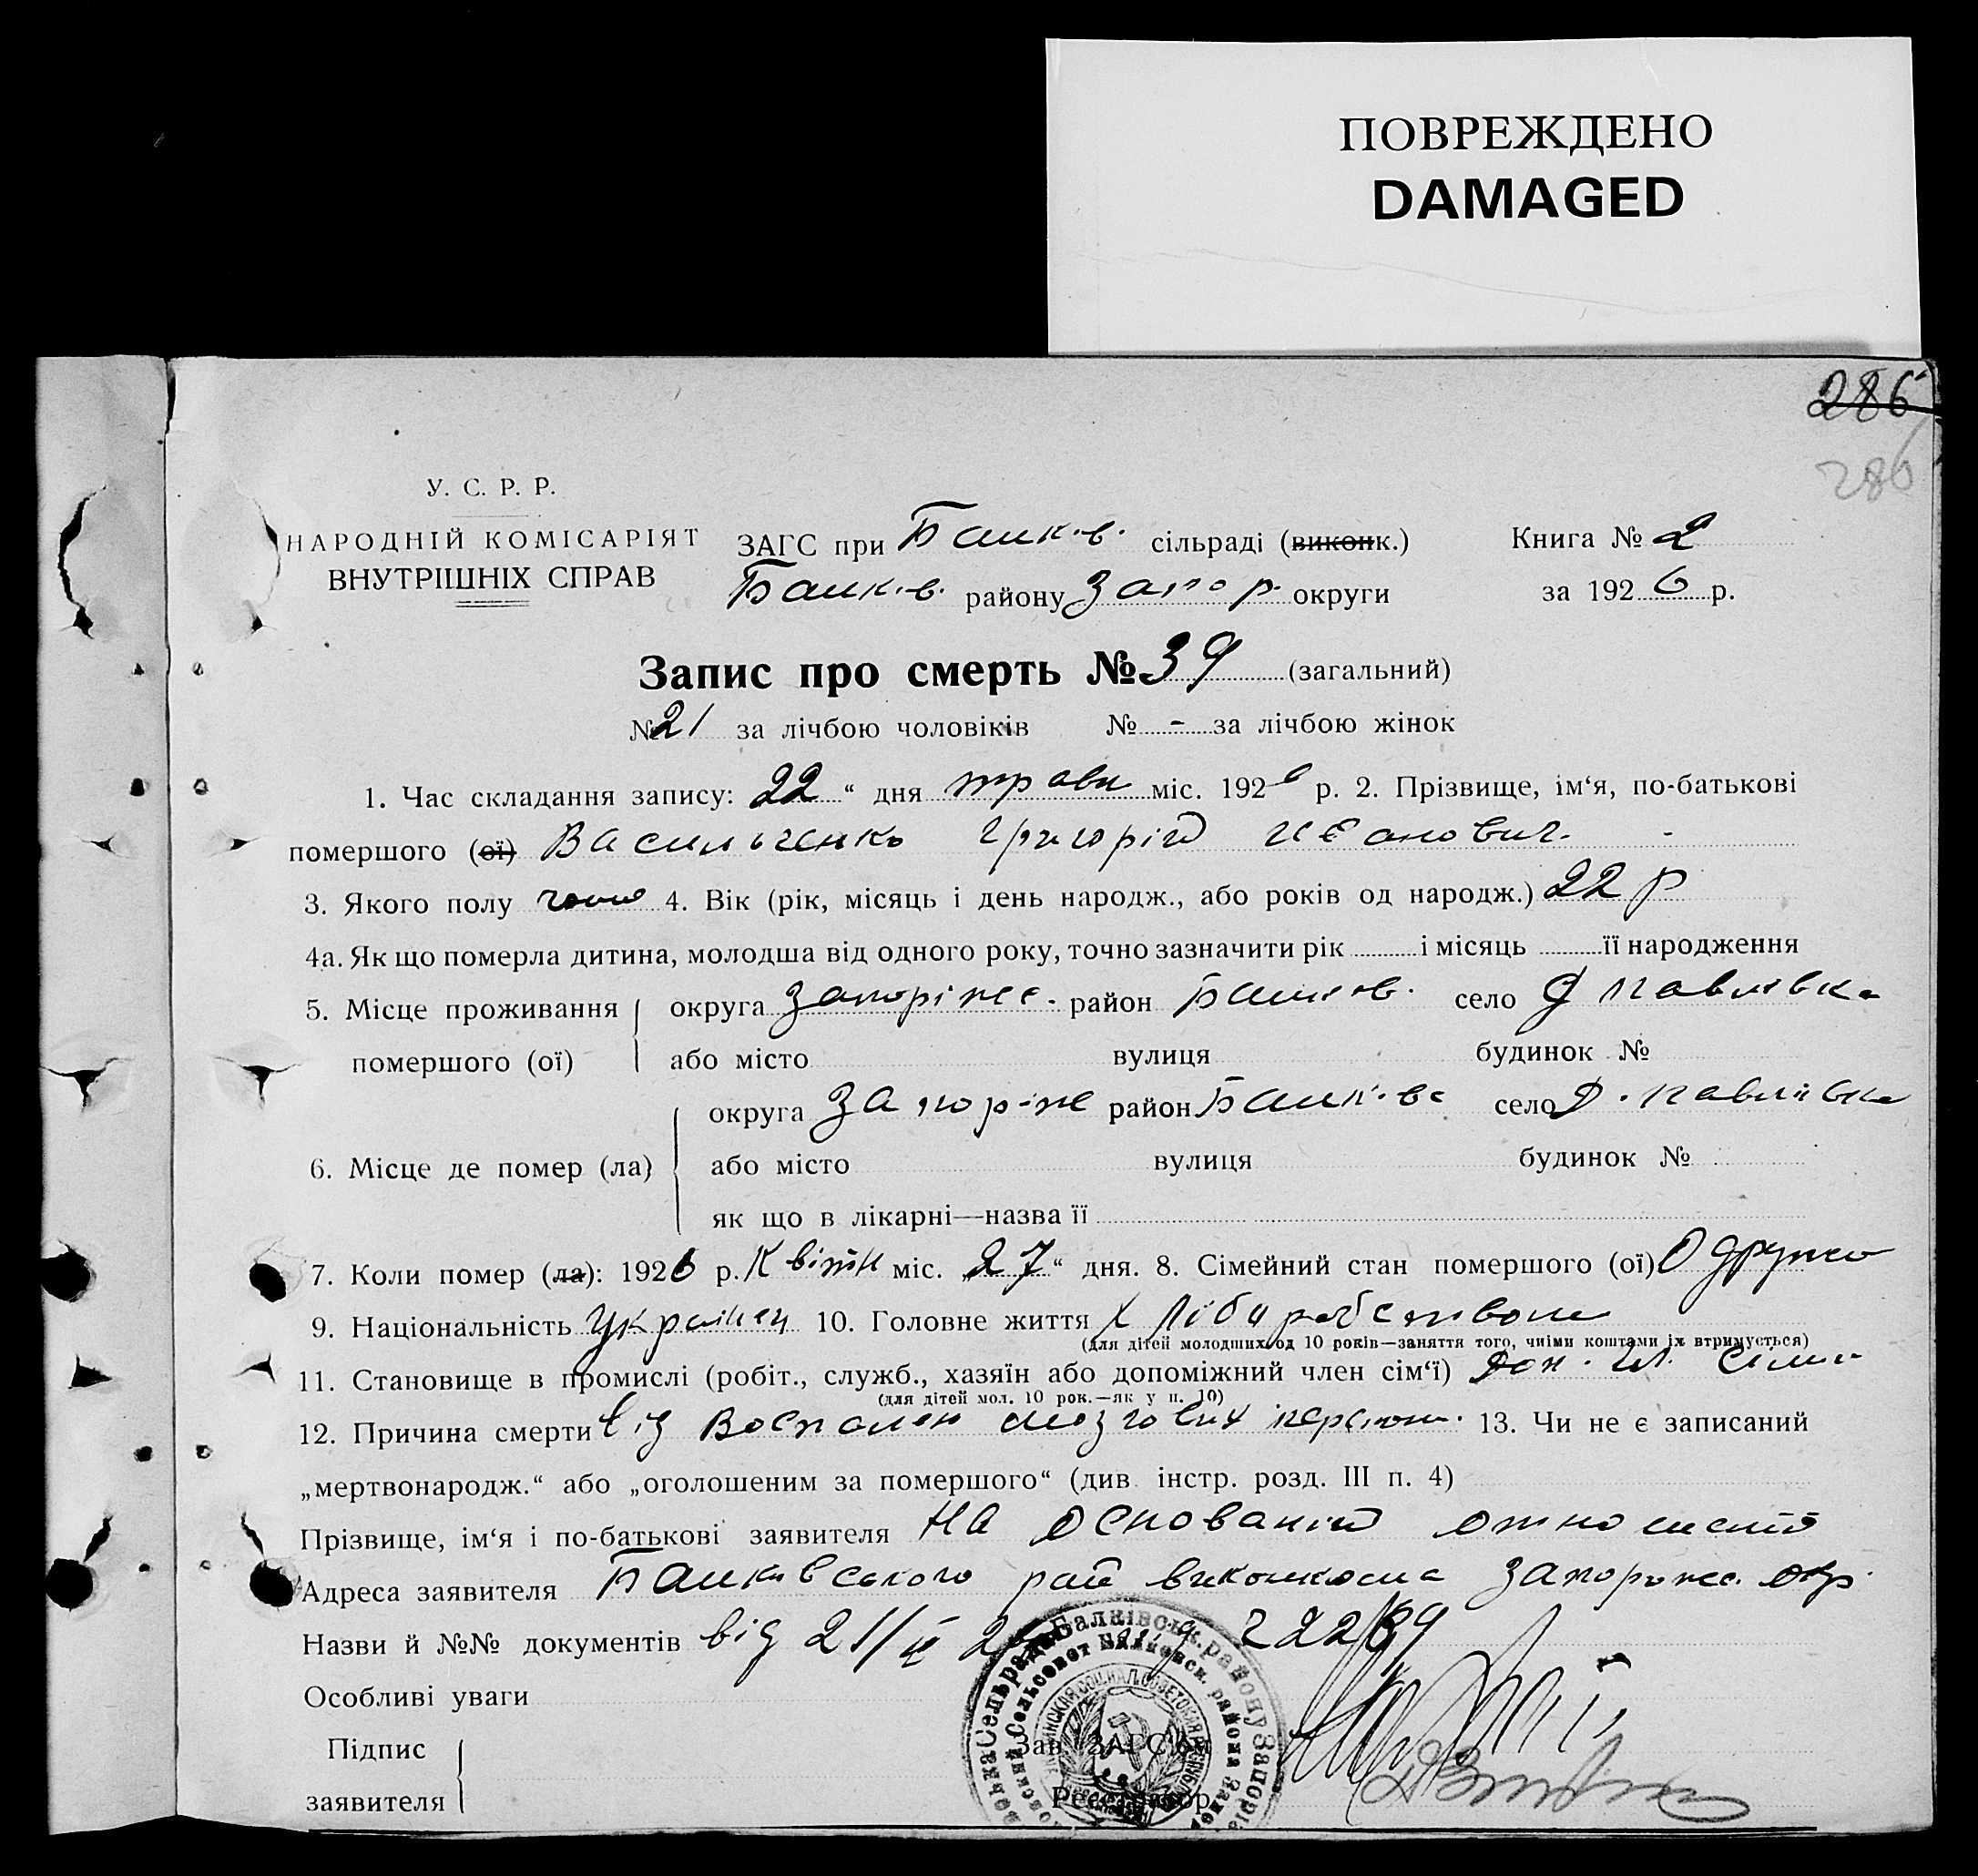 ПОВРЕЖДЕНО
DAMAGED
286
286
У. С. Р. Р.
НАРОДНІЙ КОМІСАРІЯТ
ВНУТРІШНІХ СПРАВ
ЗАГС при Балків. сільраді (виконк.)
Балків. району Запор. округи
Книга № 2
за 1926 р.
Запис про смерть № 39 (загальний)
№ 21 за лічбою чоловіків № - за лічбою жінок
1. Час складання запису: 22 “ дня травн міс. 1926 р. 2. Прізвище, ім‘я, по-батькові
помершого (ої) Васильченко Григорій Иванович
3. Якого полу чолов 4. Вік (рік, місяць і день народж., або років од народж.) 22 р
4а. Як що померла дитина, молодша від одного року, точно зазначити рік і місяць її народження
5. Місце проживання помершого (ої) округа Запоріже. район Балків. село Павлівка
або місто вулиця будинок №
6. Місце де помер (ла) округа Запоріже район Балків село Павлівка
або місто вулиця будинок №
як що в лікарні—назва її
7. Коли помер (ла): 1926 р. Квітн міс. „27“ дня. 8. Сімейний стан помершого (ої) Одруж
9. Національність Українец 10. Головне життя Хліборобством
(для дітей молодших од 10 років—заняття того, чиїми коштами їх втримується)
11. Становище в промислі (робіт., служб., хазяїн або допоміжний член сім‘ї) доп. чл. сімї
(для дітей мол. 10 рок.—як у п. 10)
12. Причина смерти від Воспален мозгових 13. Чи не є записаний
„мертвонародж.“ або „оголошеним за помершого“ (див. інстр. розд. III п. 4)
Прізвище, ім‘я і по-батькові заявителя На основании отношения
Адреса заявителя Балківського рай виконкома Запорожс. окр.
Назви й №№ документів від 21/ 222/89
Особливі уваги
Підпис
заявителя
Зав. ЗАГС‘ом
Реєстратор